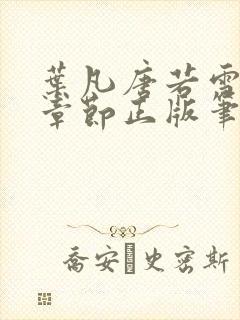 葉凡唐若雪
章節正版筆
喬安·史密斯